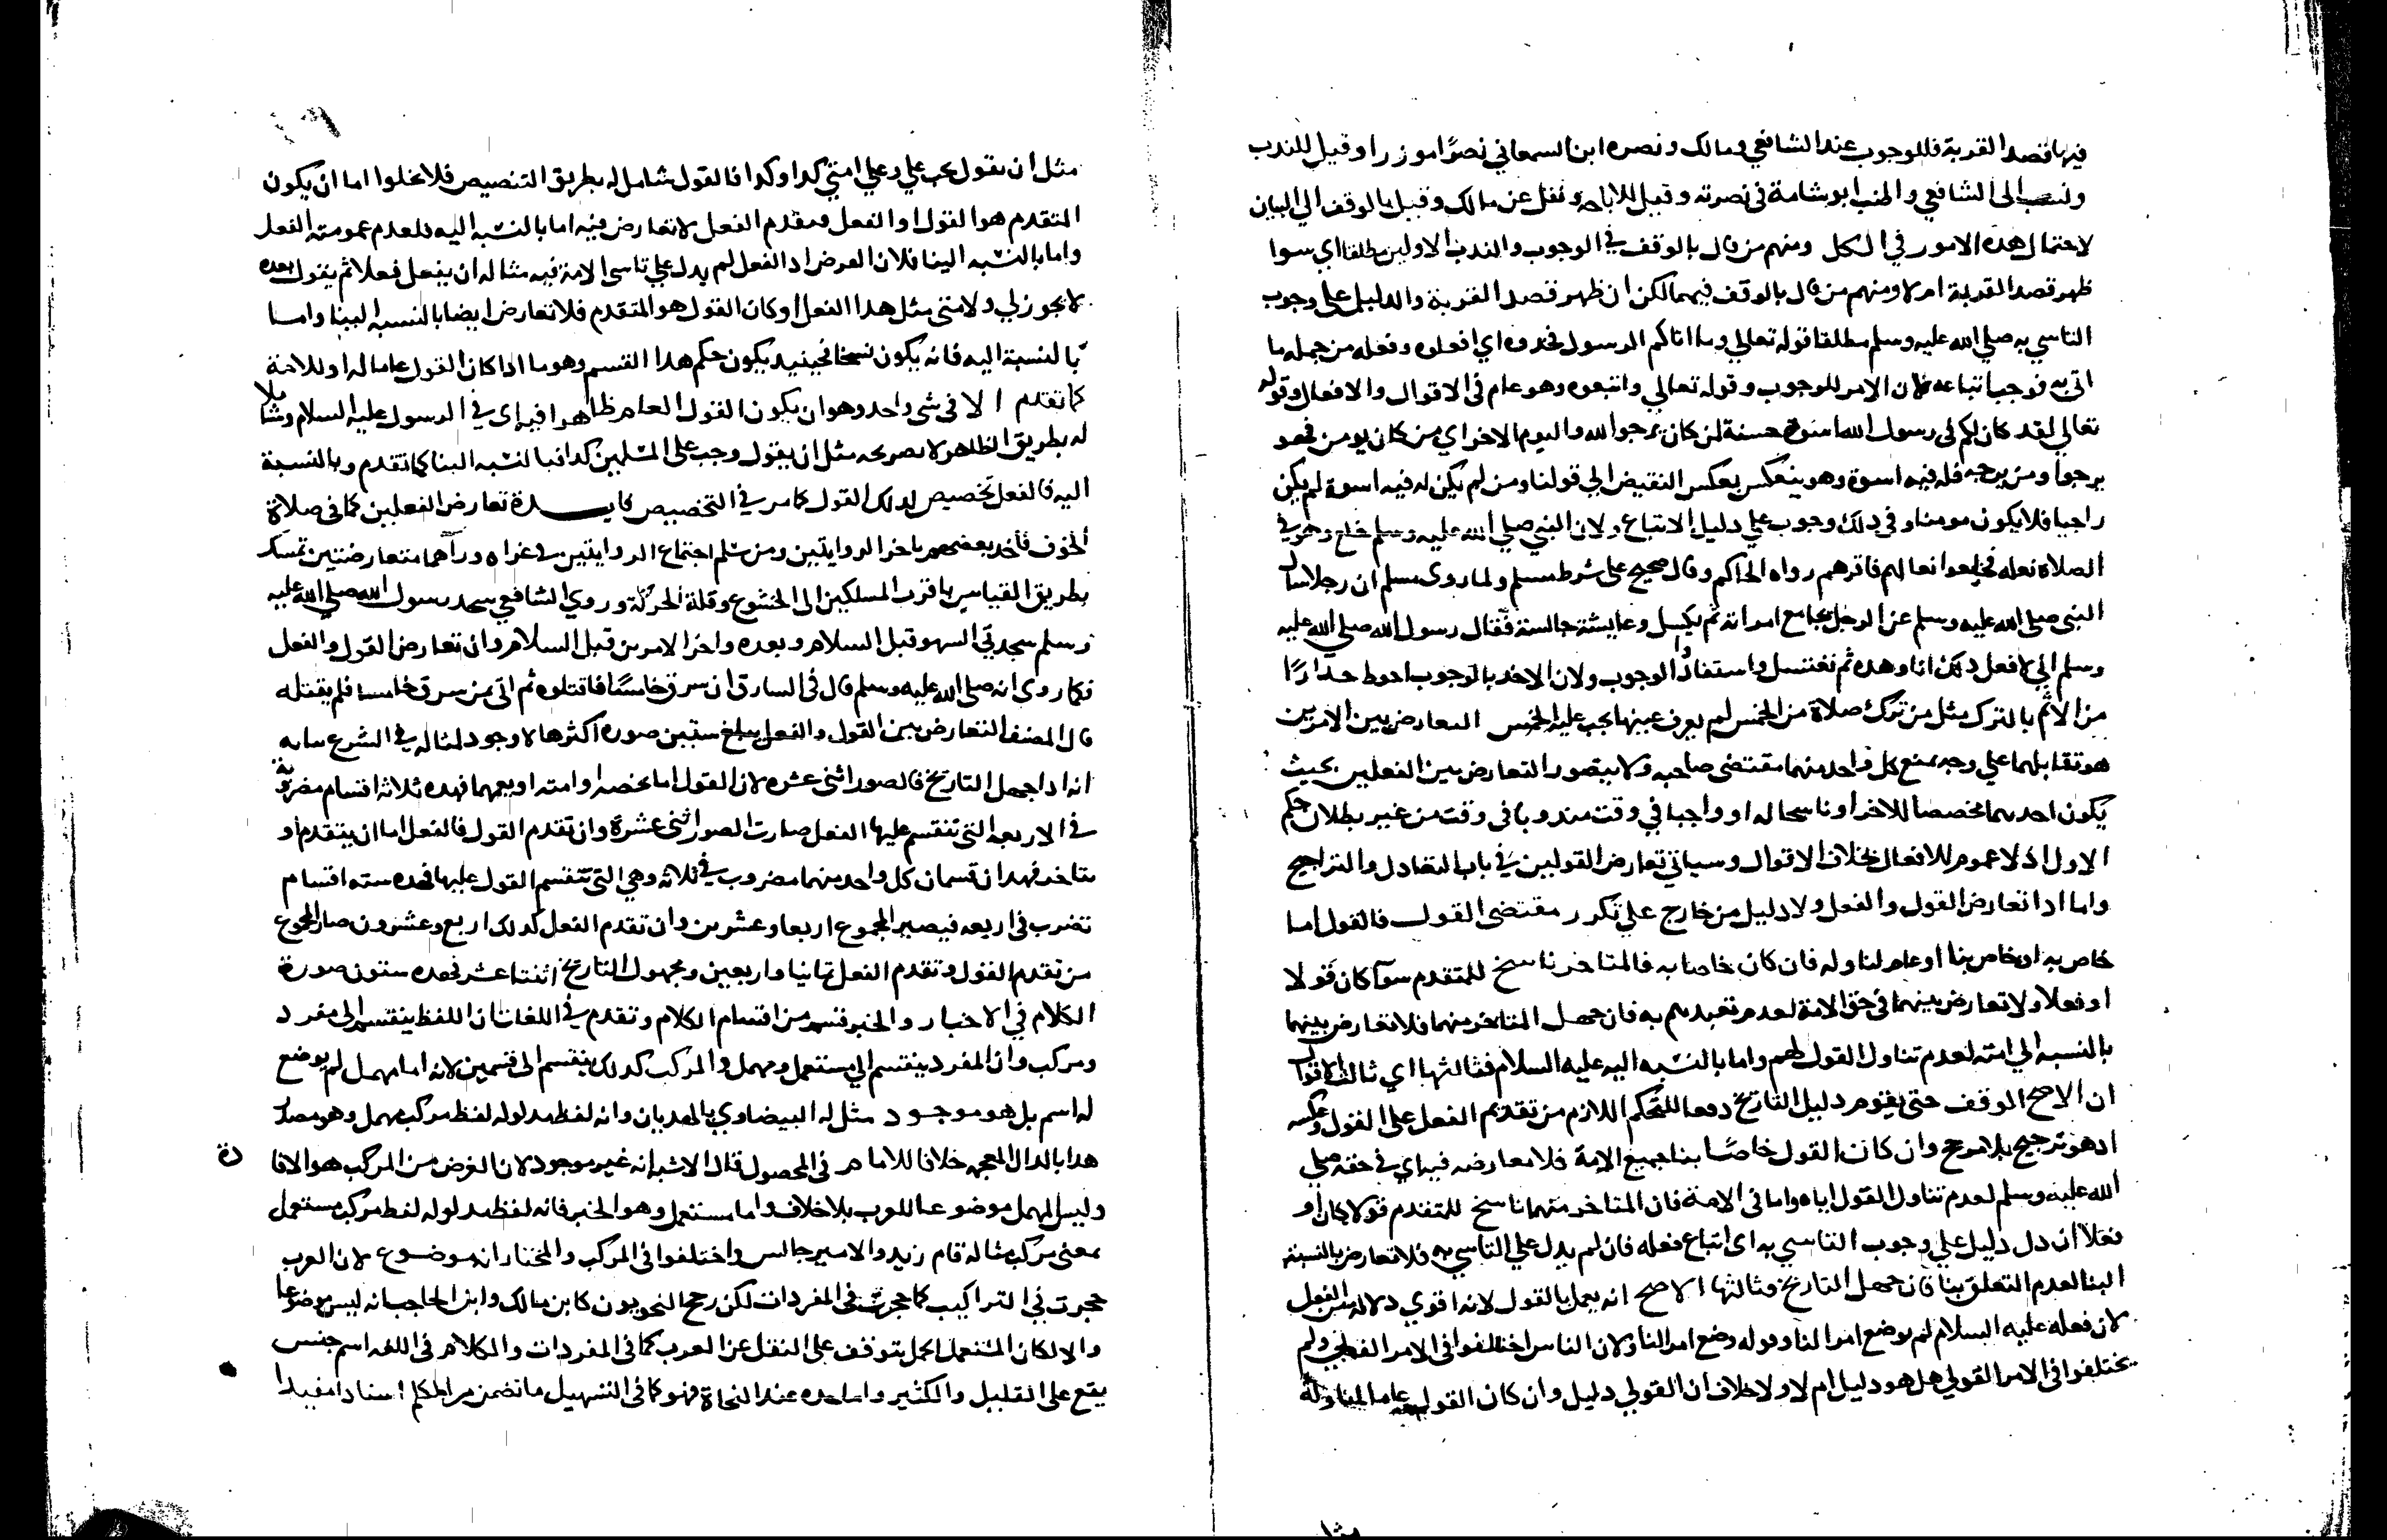 فيها قصد القربة فللوجوب عند الشافعي ومالك ونصره ابن السمعاني نصرًا موزرا وقيل للندب
ونسب الى الشافعي واطنب ابو شامة في نصرته وقيل للاباحة ونقل عن مالك وقيل بالوقف الي البيان
لاحتمال هذه الامور في الكل ومنهم من قال بالوقف في الوجوب والندب الاولين مطلقا اي سوا
ظهر قصد القربة ام لا ومنهم من قال بالوقف فيهما لكن ان ظهر قصد القربة والدليل على وجوب
التاسي به صلي الله عليه وسلم مطلقا قوله تعالي وما اتاكم الرسول فخدوه اي افعلوه وفعله من جمله ما
اتى به فوجب اتباعه لان الامر للوجوب وقوله تعالي واتبعوه وهو عام في الاقوال والافعال وقوله
تعالي لقد كان لكم في رسول الله اسوة حسنة لمن كان يرجوا الله واليوم الاخر اي من كان يومن فهو
يرجوا ومن يرجه فله فيه اسوة وهو ينعكس بعكس النقيض الي قولنا ومن لم يكن له فيه اسوة لم يكن
راجيا فلا يكون مومنا وفي دلك وجوب علي دليل الاتباع ولان النبي صلي الله عليه وسلم خلع وهو في
الصلاة نعله فخلعوا نعالهم فاقرهم رواه الحاكم وقال صحيح على شرط مسلم ولما روى مسلم ان رجلا سال
النبي صلى الله عليه وسلم عن الرجل يجامع امراته ثم يكسل وعايشة جالسة فقال رسول الله صلي الله عليه
وسلم اني لافعل دلك انا وهده ثم نغتسل واستفادُوا الوجوب ولان الاخد بالوجوب احوط حدارًا
من الاثم بالترك مثل من ترك صلاة من الخمس لم يعرف عينها يجب عليه الخمس التعارض بين الامرين
هو تقابلهما علي وجه يمنع كل واحد منهما مقتضى صاحبه ولا يتصور التعارض بين الفعلين بحيث
يكون احدهما مخصصا للاخر او ناسخا له او واجبا في وقت مندوبا في وقت من غير بطلان حكم
الاول اد لا عموم للافعال بخلاف الاقوال وسياتي تعارض القولين في باب التعادل والتراجيح
واما ادا تعارض القول والفعل ولا دليل من خارج علي تكرر مقتضى القول فالقول اما
خاص به او خاص بنا او عام لنا وله فان كان خاصا به فالمتاخر ناسخ للمتقدم سوآ كان قولا
او فعلا ولا تعارض بينهما في حق الامة لعدم تعبدهم به فان جهل المتاخر منهما فلا تعارض بينهما
بالنسبه الي امته لعدم تناول القول لهم واما بالنسبه اليه عليه السلام فثالثها اي ثالث الاقوال
ان الاصح الوقف حتى يقوم دليل التاريخ دفعا للتحكم اللازم من تقديم الفعل على القول وعكسه
اد هو ترجيح بلا مرجح وان كان القول خاصًا بنا جميع الامة فلا معارضه فيه اي في حقه صلي
الله عليه وسلم لعدم تناول القول اياه واما في الامة فان المتاخر منهما ناسخ للمتقدم قولا كان او
فعلا ان دل دليل علي وجوب التاسي به اى اتباع فعله فان لم يدل علي التاسي به فلا تعارض بالنسبة
الينا لعدم التعلق بنا فان جهل التاريخ فثالثها الاصح انه يعمل بالقول لانه اقوي دلاله من الفعل
لان فعله عليه السلام لم يوضع امرا لنا وقوله وضع امرا لنا ولان الناس اختلفوا في الامر الفعلي ولم
يختلفوا في الامر القولي هل هو دليل ام لا ولا خلاف ان القولي دليل وان كان القول عاما لنا وله
مثل
مثل ان يقول يجب علي وعلي امتي كدا وكدا فالقول شامل له بطريق التنصيص فلا يخلوا اما ان يكون
المتقدم هو القول او الفعل فبتقدم الفعل لا تعارض فيه اما بالنسبه اليه فلعدم عموميته الفعل
واما بالنسبه الينا فلان الفرض اد الفعل لم يدل علي تاسي الامة فيه مثاله ان يفعل فعلا ثم يقول بعده
لا يجوز لي ولا متى مثل هدا الفعل او كان القول هو المتقدم فلا تعارض ايضا بالنسبه الينا واما
بالنسبة اليه فانه يكون نسخا فحينيد يكون حكم هدا القسم وهو ما ادا كان القول عاما له وللامة
كما تقدم الا في شى واحد وهو ان يكون القول العام ظاهرا فيه اى في الرسول عليه السلام وشاملا
له بطريق الظاهر لا بصريحه مثل ان يقول وجب على المسلمين كدا فبالنسبه الينا كما تقدم وبالنسبة
اليه فالفعل تخصيص لدلك القول كما مر في التخصيص فايدة تعارض الفعلين كما في صلاة
الخوف فاخد بعضهم باخر الروايتين ومن سلم اجتماع الروايتين في غزاه ورآهما متعارضتين تمسك
بطريق القياس باقرب المسلكين الى الخشوع وقلة الحركة وروي الشافعي سجد رسول الله صلي الله عليه
وسلم سجدتي السهو قبل السلام وبعده واخر الامرين قبل السلام وان تعارض القول والفعل
فكما روى انه صلي الله عليه وسلم قال في السارق ان سرق خامسًا فاقتلوه ثم اتى بمن سرق خامسا فلم يقتله
قال المصنف التعارض بين القول والفعل يبلغ ستين صوره اكثرها لا وجود لمثاله في الشرع بيانه
انه ادا جهل التاريخ فالصور اثنى عشره لان القول اما يخصه او امته او يعمهما فهده ثلاثه اقسام مضروبة
في الاربعه التي تنقسم عليها الفعل صارت الصور اثنى عشرة وان تقدم القول فالفعل اما ان يتقدم او
يتاخر فهدان قسمان كل واحد منهما مضروب في ثلاثه وهي التى تنقسم القول عليها فهده سته اقسام
تضرب في اربعه فيصير المجموع اربعا وعشرين وان تقدم الفعل كدلك اربع وعشرون صار المجموع
من تقدم القول وتقدم الفعل ثمانيا واربعين ومجهول التاريخ اثنتا عشر فهده ستون صورة
الكلام في الاخبار والخبر قسم من اقسام الكلام وتقدم في اللغات ان اللفظ ينقسم الى مفرد
ومركب وان المفرد ينقسم الي مستعمل ومهمل والمركب كدلك ينقسم الى قسمين لانه اما مهمل لم يوضع
له اسم بل هو موجود مثل له البيضاوي بالهديان وانه لفظ مدلوله لفظ مركب مهمل وهو مصدر
هدا بالدال المعجمه خلافا للامام في المحصول قال الاشبه انه غير موجود لان الغرض من المركب هو الافا دة
وليس المهمل موضوعا للعرب بلا خلاف واما مستعمل وهو الخبر فانه لفظ مدلوله لفظ مركب مستعمل
بمعنى مركب مثاله قام زيد والامير جالس واختلفوا في المركب والمختار انه موضوع لان العرب
حجرت في التراكيب كما حجرت في المفردات لكن رجح النحويون كابن مالك وابن الحاجب انه ليس موضوعا
والا لكان المستعمل الجمل يتوقف على النقل عن العرب كما في المفردات والكلام في اللغه اسم جنس
يقع على القليل والكثير واما حده عند النحاة فهو كما في التسهيل ما تضمن من الكلم اسنادا مفيدا